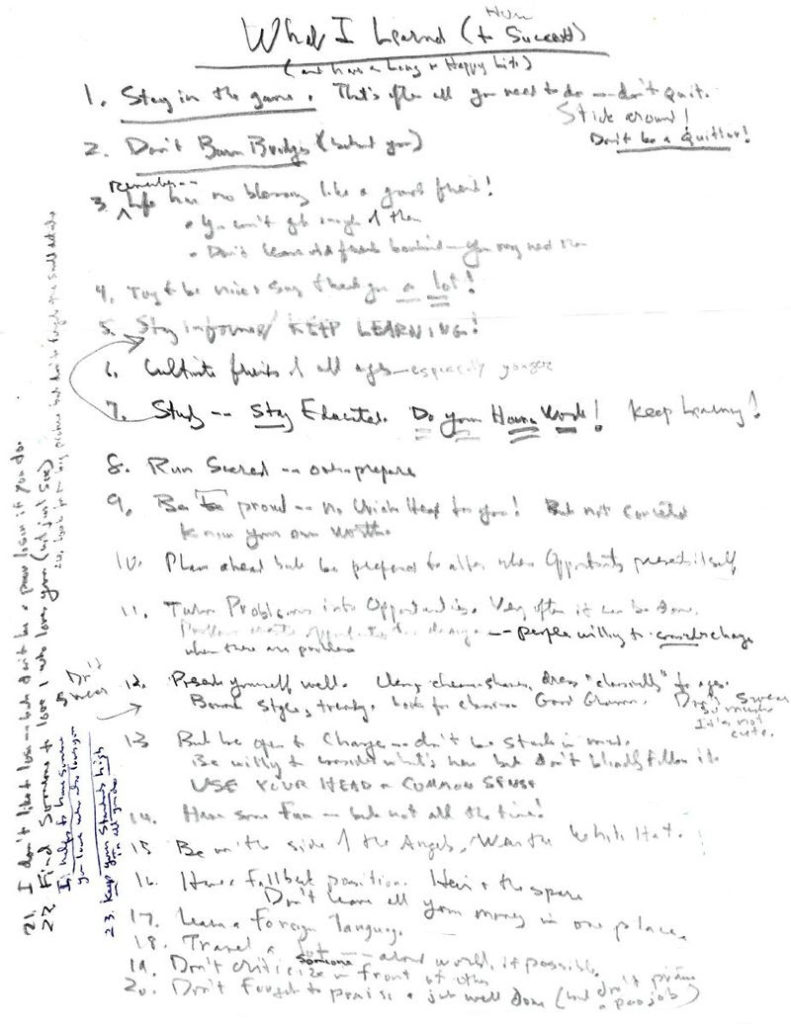 What I Learned (How to Succeed)
(and have a Long & Happy Life)
1. Stay in the game. That's often all you need to do -- don't quit.
Stick around!
Don't be a Quitter!
2. Don't Burn Bridges (behind you)
3. Remember -- Life has no blessing like a good friend!
• You can't get enough of them
• Don't leave old friends behind -- you may need them
4. Try to be nice & say thank you a lot!
5. Stay informed / KEEP LEARNING!
6. Cultivate friends of all ages -- especially younger
7. Study -- Stay Educated. Do your Home Work! Keep learning!
8. Run Scared -- over-prepare
9. Be proud -- no Uriah Heep for you! But not conceited
Know your own worth.
10. Plan ahead but be prepared to alter when Opportunity presents itself.
11. Turn Problems into Opportunities. Very often it can be done.
Problems create opportunities for change -- people willing to consider change
when there are problems
12. Present yourself well. Clean, shoes, dress "classically" for ages.
Beware styles, trendy. Good Grammar. Don't Swear
so much
It's not
cute.
13 But be open to Change -- don't be stuck in mud.
Be willing to consider what's new but don't blindly follow it.
USE YOUR HEAD - COMMON SENSE
14. Have some Fun -- but not all the time!
15 Be on the side of the Angels. Wear the White Hat.
16. Have a fallback position. Heir & the spare
Don't leave all your money in one place.
17. Learn a foreign language.
18. Travel a lot -- around world, if possible.
19. Don't criticize someone in front of others
20. Don't forget to praise a job well done (but don't praise
a poor job)
21. I don't like to lose -- but don't be a poor loser if you do.
22. Find Someone to love & who loves you (not just sex)
It helps to have someone
you love who also loves you
23. Keep your Standards high
in all you do
24. Look for the big picture but don't forget the small details